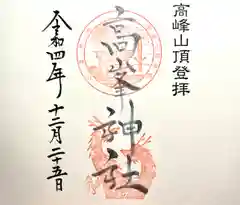 高峰山頂登拝
高峯神社
令和四年
十二月二十五日